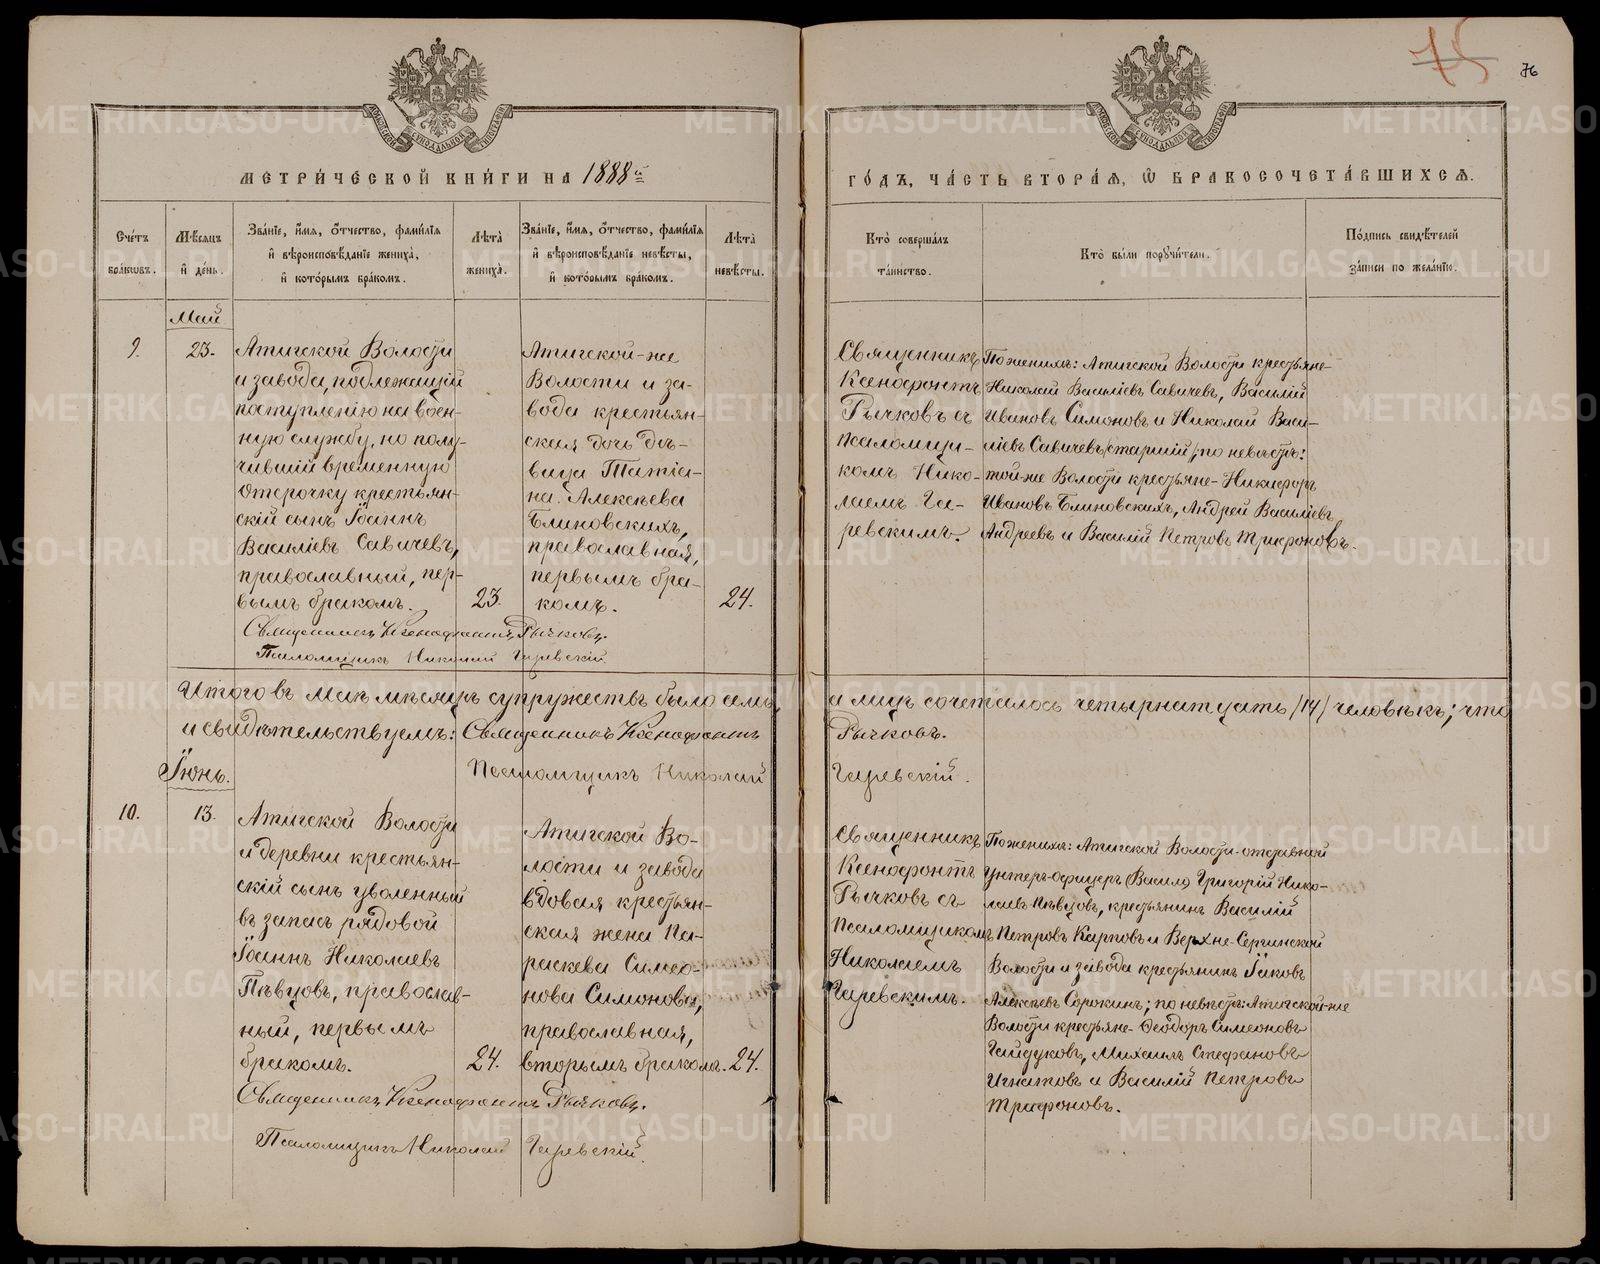 75
76
МЕТРИ́ЧЕСКОЙ КНИ́ГИ НА 1888й
ГО́ДЪ, ЧА́СТЬ ВТОРА́Я, Ѽ БРАКОСОЧЕТА́ВШИХСЯ.
Сче́тъ бра́кωвъ.
Мѣ́сяцъ и҆ де́нь.
Зва́нїе, и҆́мя, ѻ҆́тчество, фами́лїя
и҆ вѣроисповѣ́данїе жениха̀,
и҆ кото́рымъ бра́комъ.
Лѣ́та̀ жениха̀.
Зва́нїе, и҆́мя, ѻ҆́тчество, фами́лїя
и҆ вѣроисповѣ́данїе невѣ́сты,
и҆ кото́рымъ бра́комъ.
Лѣ́та̀ невѣ́сты.
Кто̀ соверша́лъ та́инство.
Кто̀ бы́ли порꙋчи́тели.
По́дпись свидѣ́телей за́писи по жела́нїю.
Май
9.
23.
Атигской Волости
и завода, подлежащій
поступленію на воен-
ную службу, но полу-
чившій временную
отсрочку крестьян-
скій сынъ Іоаннъ
Василіевъ Савичевъ,
православный, пер-
вымъ бракомъ.
23.
Атигской-же
Волости и за-
вода крестьян-
ская дочь дѣ-
вица Татіа-
на Алексѣева
Блиновскихъ,
православная,
первымъ бра-
комъ.
24.
Священникъ
Ксенофонтъ
Рычковъ съ
псаломщи-
комъ Нико-
лаемъ
По женихѣ: Атигской Волости крестьяне-
Николай Василіевъ Савичевъ, Василій
Ивановъ Симоновъ и Николай Васи-
ліевъ Савичевъ /старшій/; по невѣстѣ:
той-же Волости крестьяне- Никифоръ
Ивановъ Блиновскихъ, Андрей Василіевъ
Андреевъ и Василій Петровъ Трифоновъ.
Священникъ Ксенофонтъ Рычковъ.
Псаломщикъ Николай
Итого въ Маѣ мѣсяцѣ супружествъ было семь, а лицъ сочеталось четырнатцать /14/ человѣкъ; что
и свидѣтельствуемъ: Священникъ Ксенофонтъ Рычковъ.
Псаломщикъ Николай
Іюнь.
10.
13.
Атигской Волости
и деревни крестьян-
скій сынъ уволенный
въ запасъ рядовой
Іоаннъ Николаевъ
Пѣвцовъ, православ-
ный, первымъ
бракомъ.
24.
Атигской Во-
лости и завода
вдовая крестьян-
ская жена Па-
раскева Симео-
нова Симонова,
православная,
вторымъ бракомъ.
24.
Священникъ
Ксенофонтъ
Рычковъ съ
Псаломщикомъ
Николаемъ
По женихѣ: Атигской Волости отставной
унтеръ-офицеръ (Васил) Григорій Нико-
лаевъ Пѣвцовъ, крестьянинъ Василій
Петровъ Карповъ и Верхне-Сергинской
Волости и завода крестьянинъ Іаковъ
Алексѣевъ Сорокинъ; по невѣстѣ: Атигской-же
Волости крестьяне- Ѳеодоръ Симеоновъ
Гайдуковъ, Михаилъ Стефановъ
Игнатовъ и Василій Петровъ
Трифоновъ.
Священникъ Ксенофонтъ Рычковъ.
Псаломщикъ Николай
METRIKI.GASO-URAL.RU